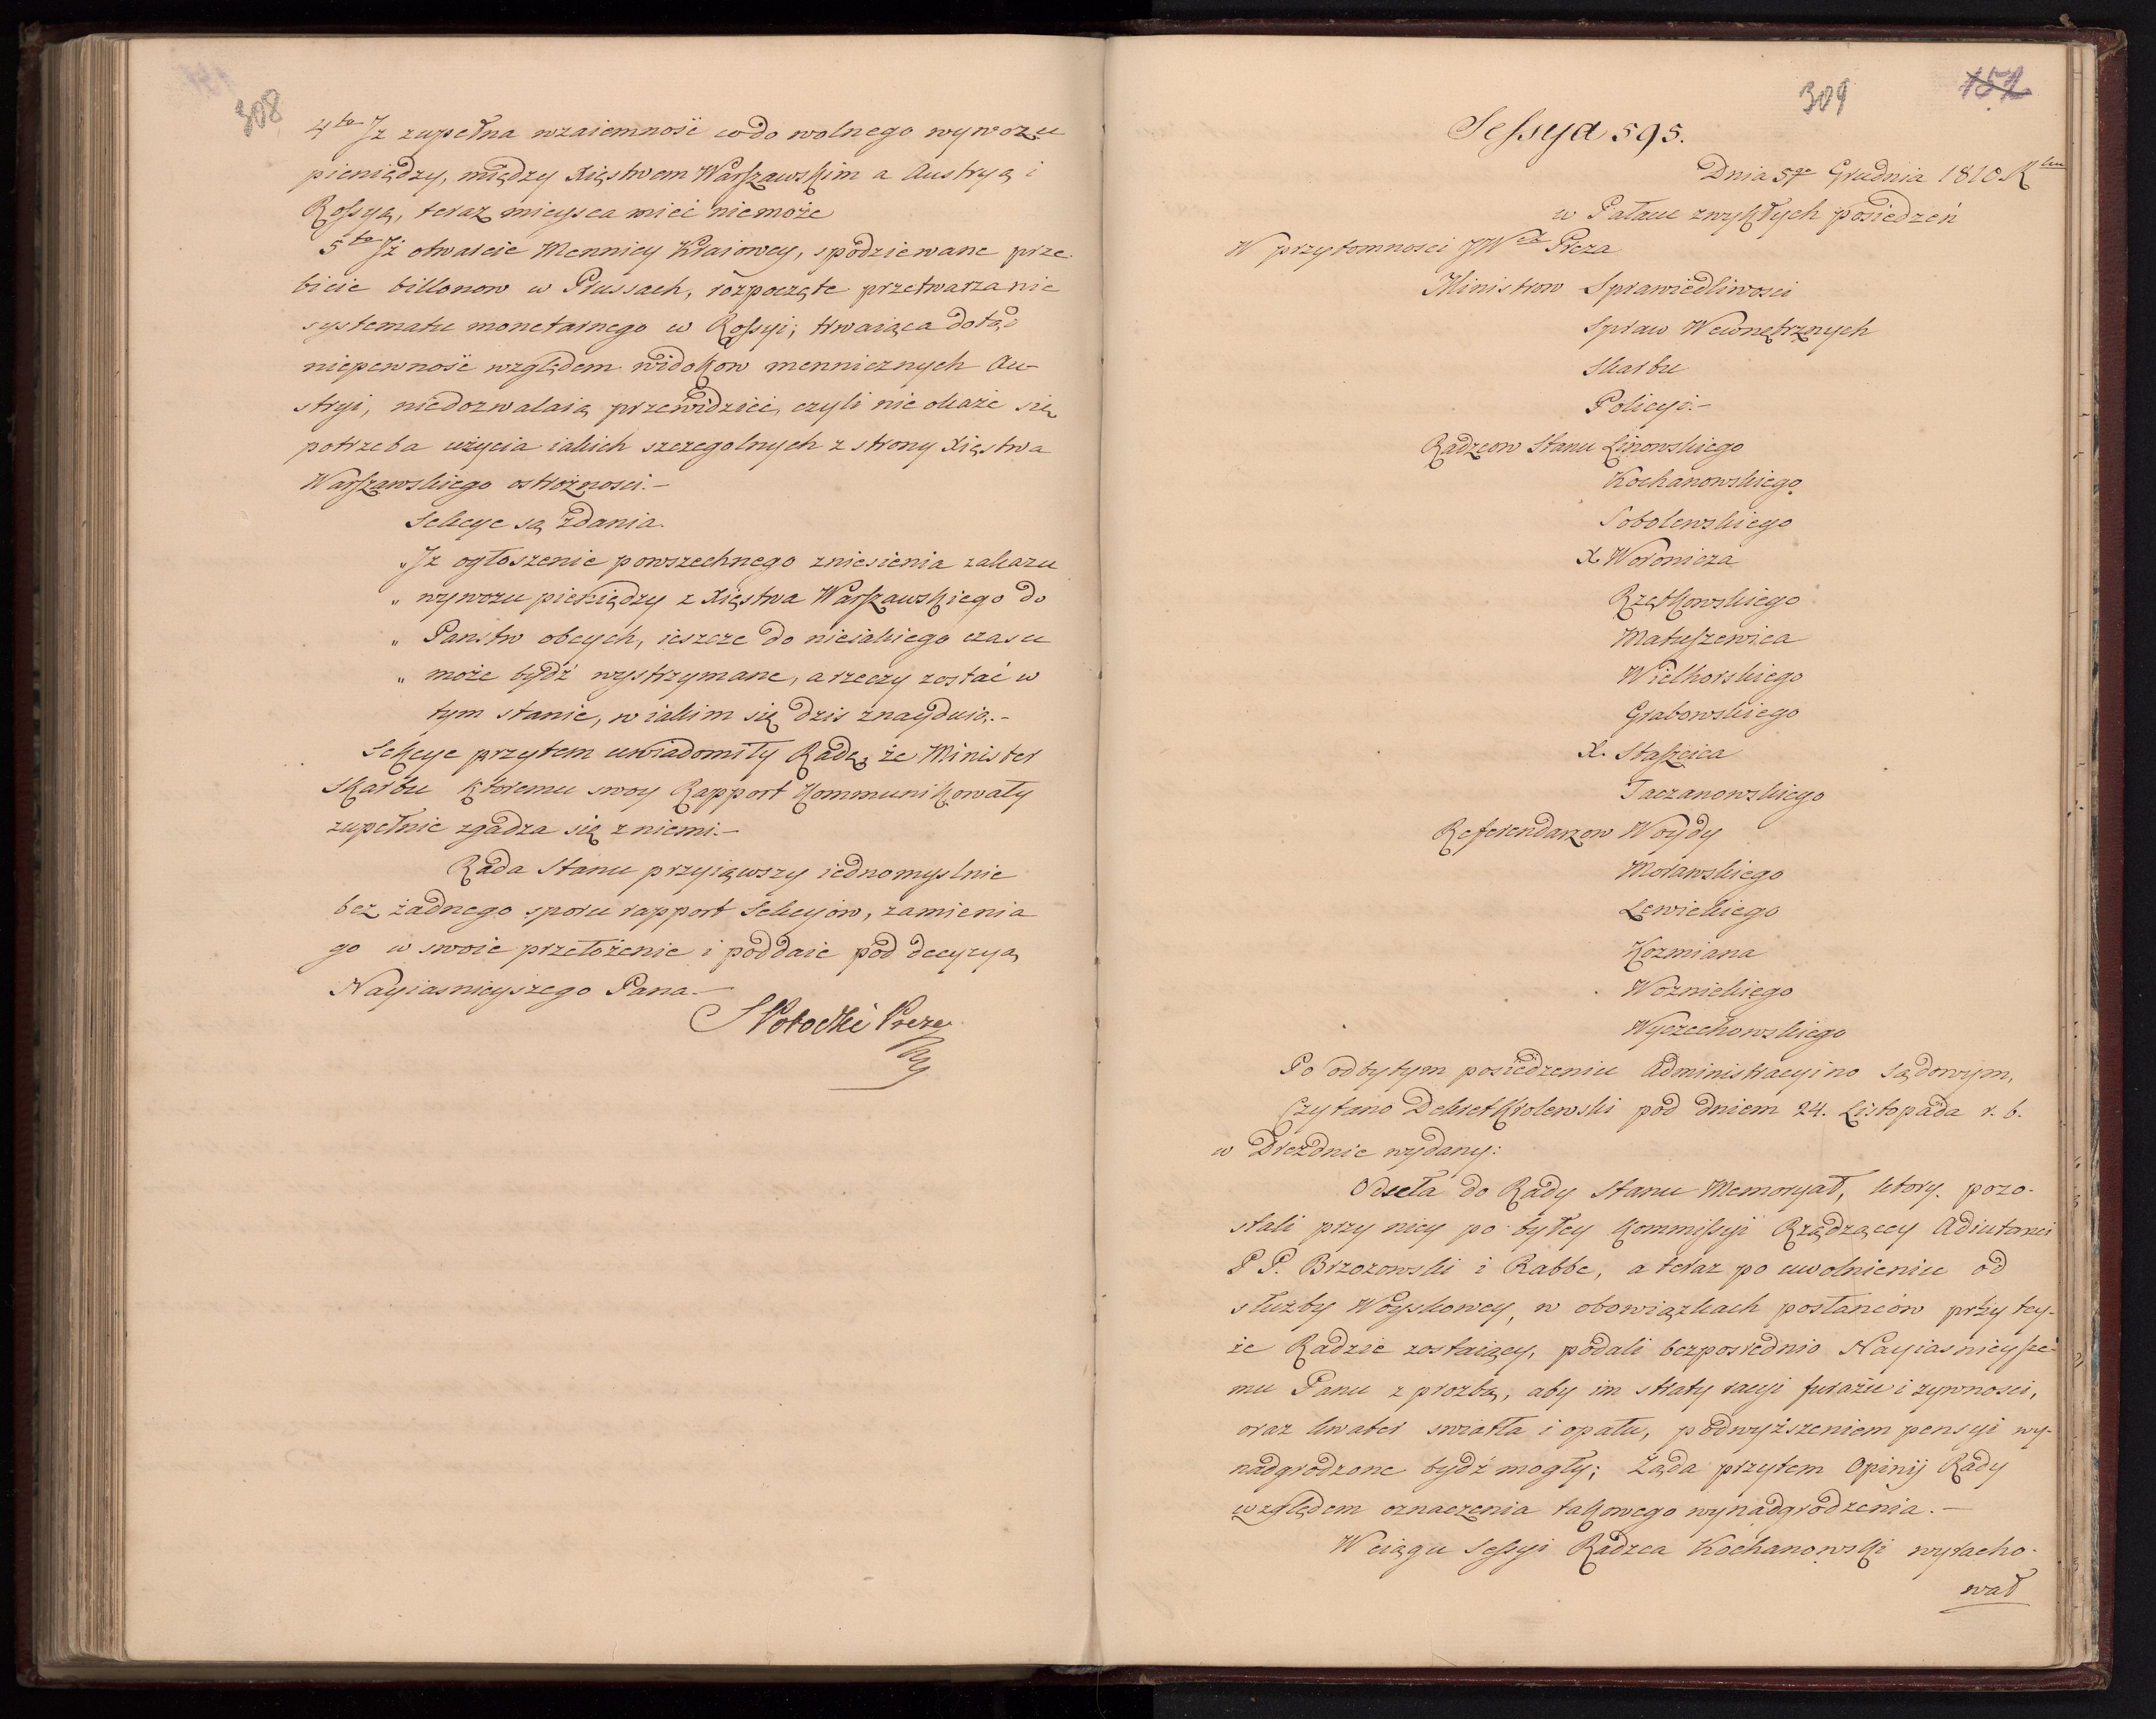 308
4to Jż zupełna wzaiemność codo wolnego wywozu
pieniędzy, między Xięstwem Warszawskim a Austryą i
Rossyą, teraz mieysca mieć niemoże
5to Jż otwarcie Mennicy Kraiowey, spodziewane prze
bicie billonow w Prussach, rozpoczęte przetwarzanie
systematu monetarnego w Rossyi; trwaiąca dotąd
niepewność względem widokow mennicznych Au-
stryi, niedozwalaią przewidzieć, czyli nie okaże się
potrzeba użycia iakich szczegolnych z strony Xięstwa
Warszawskiego ostrożnosci.-
Sekcye są zdania.
„Jż ogłoszenie powszechnego zniesienia zakazu
„ wywozu pieniędzy z Xięstwa Warszawskiego do
„ Panstw obcych, ieszcze do nieiakiego czasu
„ może bydź wystrzymane, a rzeczy zostać w
tym stanie, w iakim się dzis znayduią.-
Sekcye przytem uwiadomiły Radę, że Minister
Skarbu ktoremu swoy Rapport kommunikowały
zupełnie zgadza się z niemi.-
Rada Stanu przyiąwszy iednomyslnie
bez żadnego sporu rapport Sekcyiow, zamienia
go w swoie przełożenie i poddaie pod decyzyą
Nayiasnieyszego Pana.-
S Potocki Prezes
309
152
Sessya 595.
Dnia 5go Grudnia 1810 Rku
w Pałacu zwykłych posiedzeń
W przytomnosci JWch Preza
Ministrow Sprawiedliwosci
Spraw Wewnętrznych
Skarbu
Policyi.-
Radzcow Stanu Linowskiego
Kochanowskiego
Sobolewskiego
X. Woronicza
Rzętkowskiego
Matuszewica
Wielhorskiego
Grabowskiego
X. Staszcica
Taczanowskiego
Referendarzow Woydy
Morawskiego
Lewickiego
Kozmiana
Woznickiego
Wyczechowskiego
Po odbytym posiedzeniu Administracyino Sądowym,
Czytano Dekret Krolewski pod dniem 24. Listopada r. b.
w Dreznie wydany:
Odseła do Rady Stanu Memoryał, ktory pozo-
stali przy niey po byłey Kommissyi Rządzącey Adiutanci
P P. Brzozowski i Rabbe, a teraz po uwolnieniu od
służby Woyskowey, w obowiązkach posłanców przy tey-
że Radzie zostaiący, podali bezposrednio Nayiasnieysze-
mu Panu z prozbą, aby im straty racyi furażu i zywnosci,
oraz kwater swiatła i opału, podwyższeniem pensyi wy-
nadgrodzone bydź mogły; Żąda przytem Opinij Rady
względem oznaczenia takowego wynadgrodzenia.-
W ciągu Sessyi Radzca Kochanowski wyracho-
wał